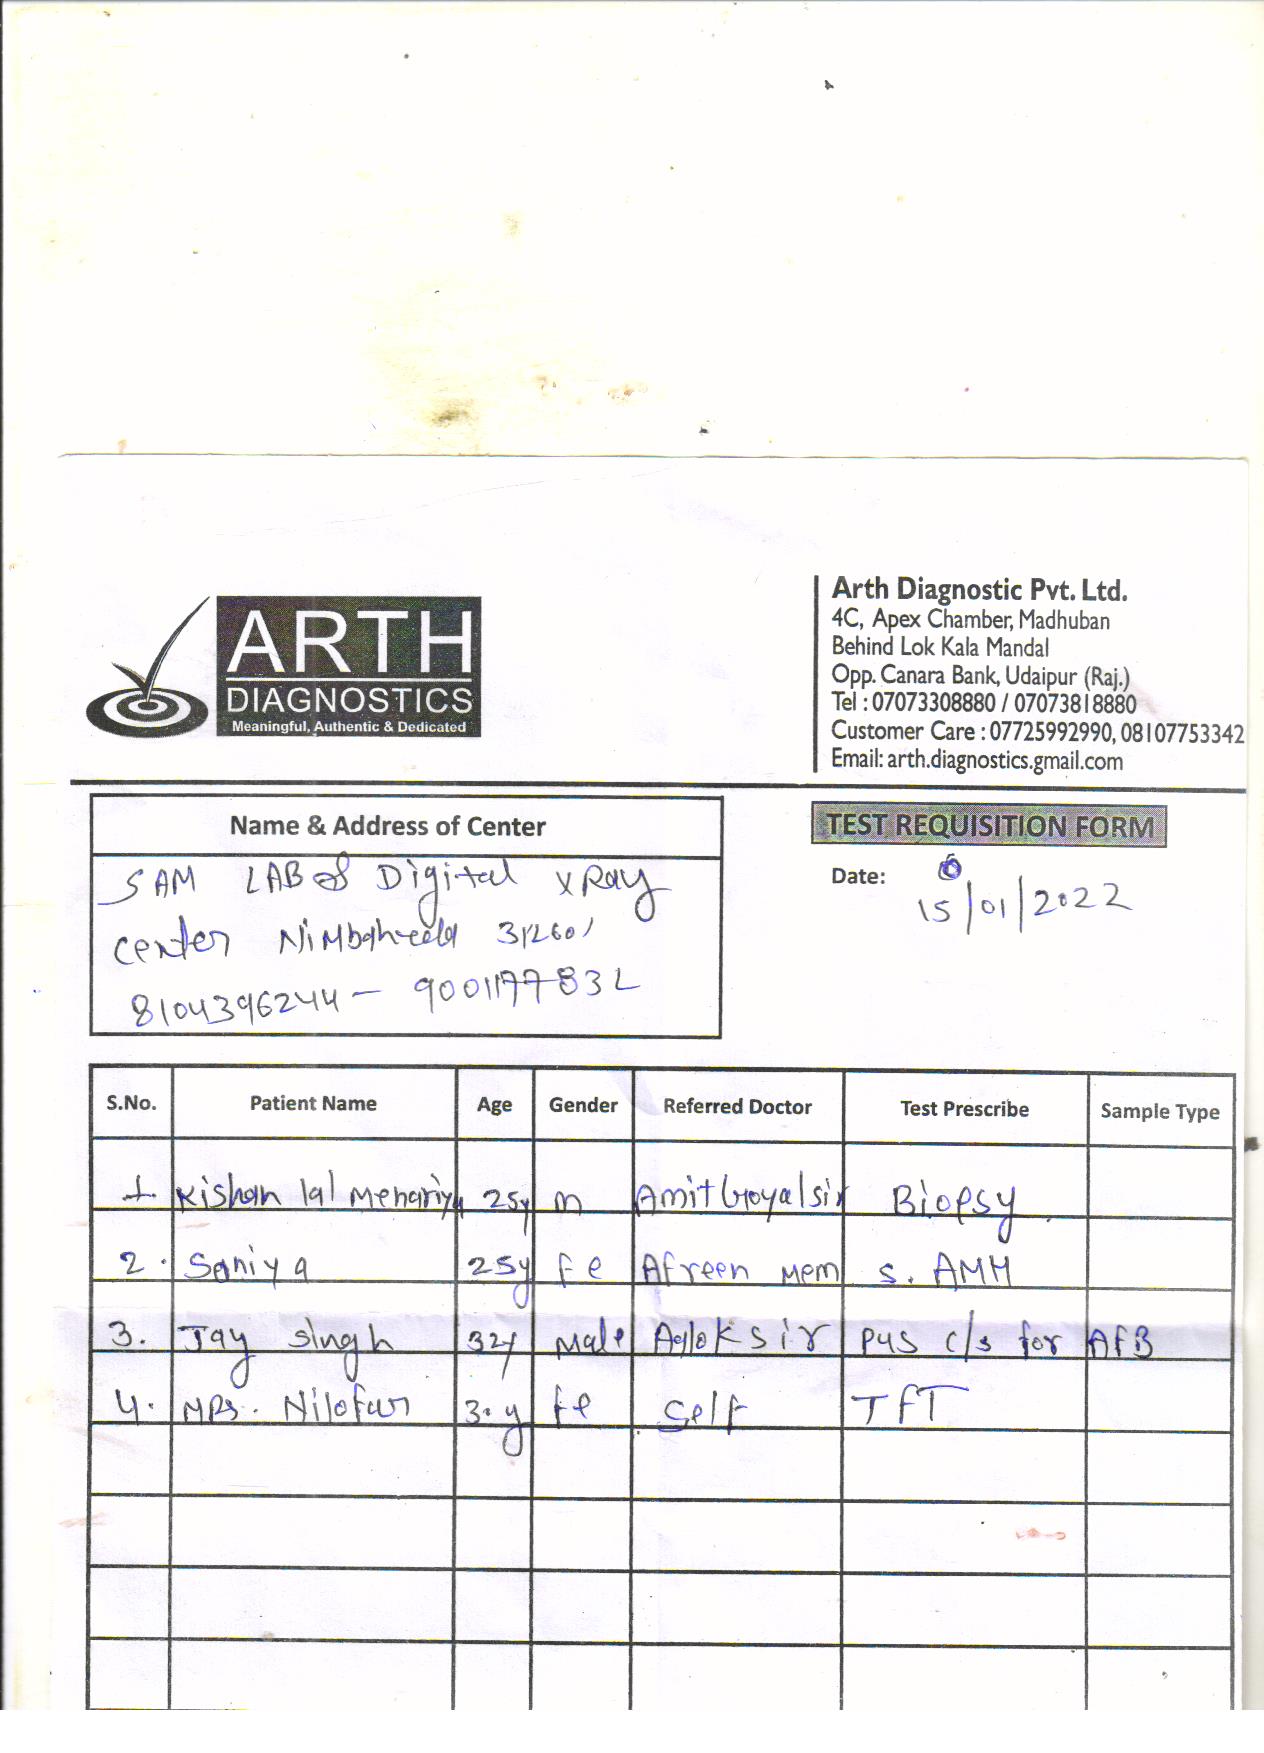 ARTH
DIAGNOSTICS
Meaningful, Authentic & Dedicated
Arth Diagnostic Pvt. Ltd.
4C, Apex Chamber, Madhuban
Behind Lok Kala Mandal
Opp. Canara Bank, Udaipur (Raj.)
Tel : 07073308880 / 07073818880
Customer Care : 07725992990, 08107753342
Email: arth.diagnostics.gmail.com
Name & Address of Center
SAM LAB & Digital X Ray
Center 312601
8104396244 - 9001177832
TEST REQUISITION FORM
Date: 15/01/2022
S.No. Patient Name Age Gender Referred Doctor Test Prescribe Sample Type
1. Kishan lal Menariya 25y m Amit Goyal sir Biopsy
2. Saniya 25y fe Afreen mem s. AMH
3. Jay singh 32y Male sir pus c/s for AFB
4. MRs. Nilofar 30 y fe Self TFT